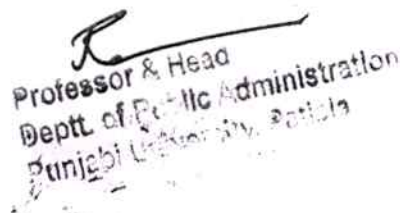 Professor & Head
Deptt. of Public Administration
Punjabi University, Patiala